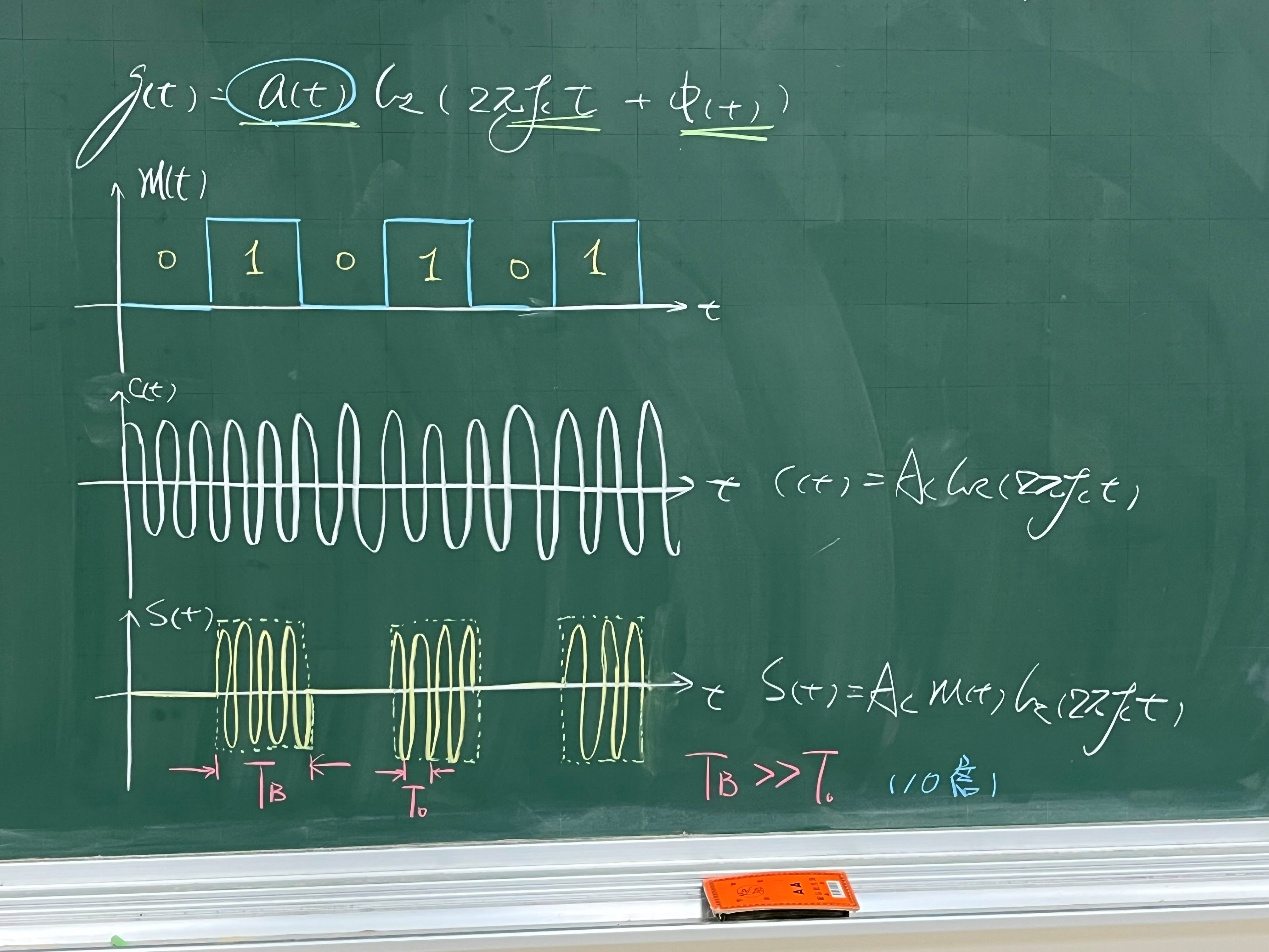 g(t) = a(t) cos(2πfct + φ(t))
m(t)
0 1 0 1 0 1
t
c(t)
t c(t) = Ac cos(2πfct)
s(t)
t s(t) = Ac m(t) cos(2πfct)
TB T0 TB >> T0 (10倍)
AA